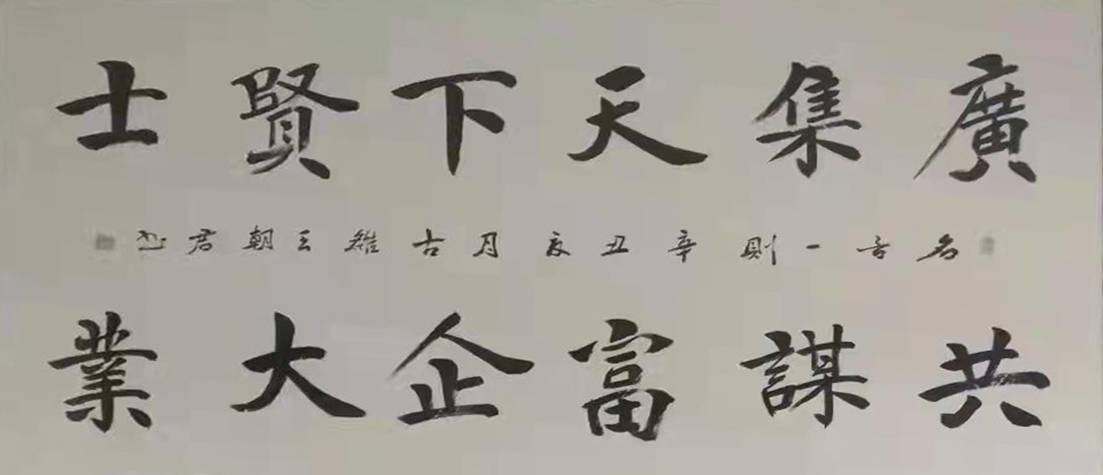 廣集天下賢士
名言一則辛丑夏月古雒王朝君书
共謀富企大業